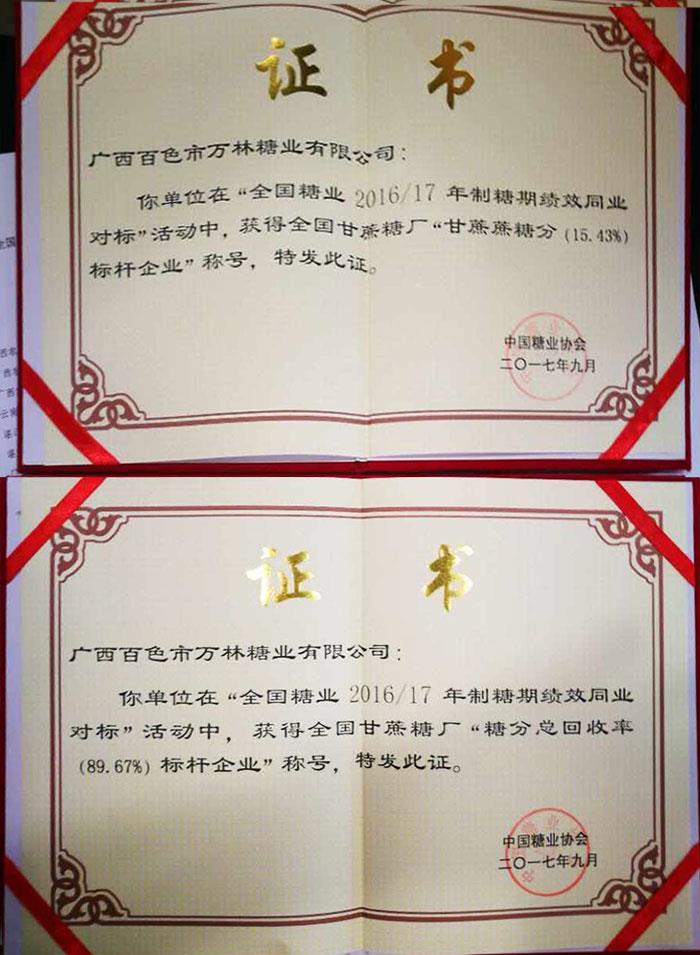 证 书
广西百色市万林糖业有限公司：
你单位在“全国糖业 2016/17 年制糖期绩效同业
对标”活动中，获得全国甘蔗糖厂“甘蔗蔗糖分 (15.43%)
标杆企业”称号，特发此证。
中国糖业协会
二〇一七年九月
证 书
广西百色市万林糖业有限公司：
你单位在“全国糖业 2016/17 年制糖期绩效同业
对标”活动中，获得全国甘蔗糖厂“糖分总回收率
(89.67%) 标杆企业”称号，特发此证。
中国糖业协会
二〇一七年九月